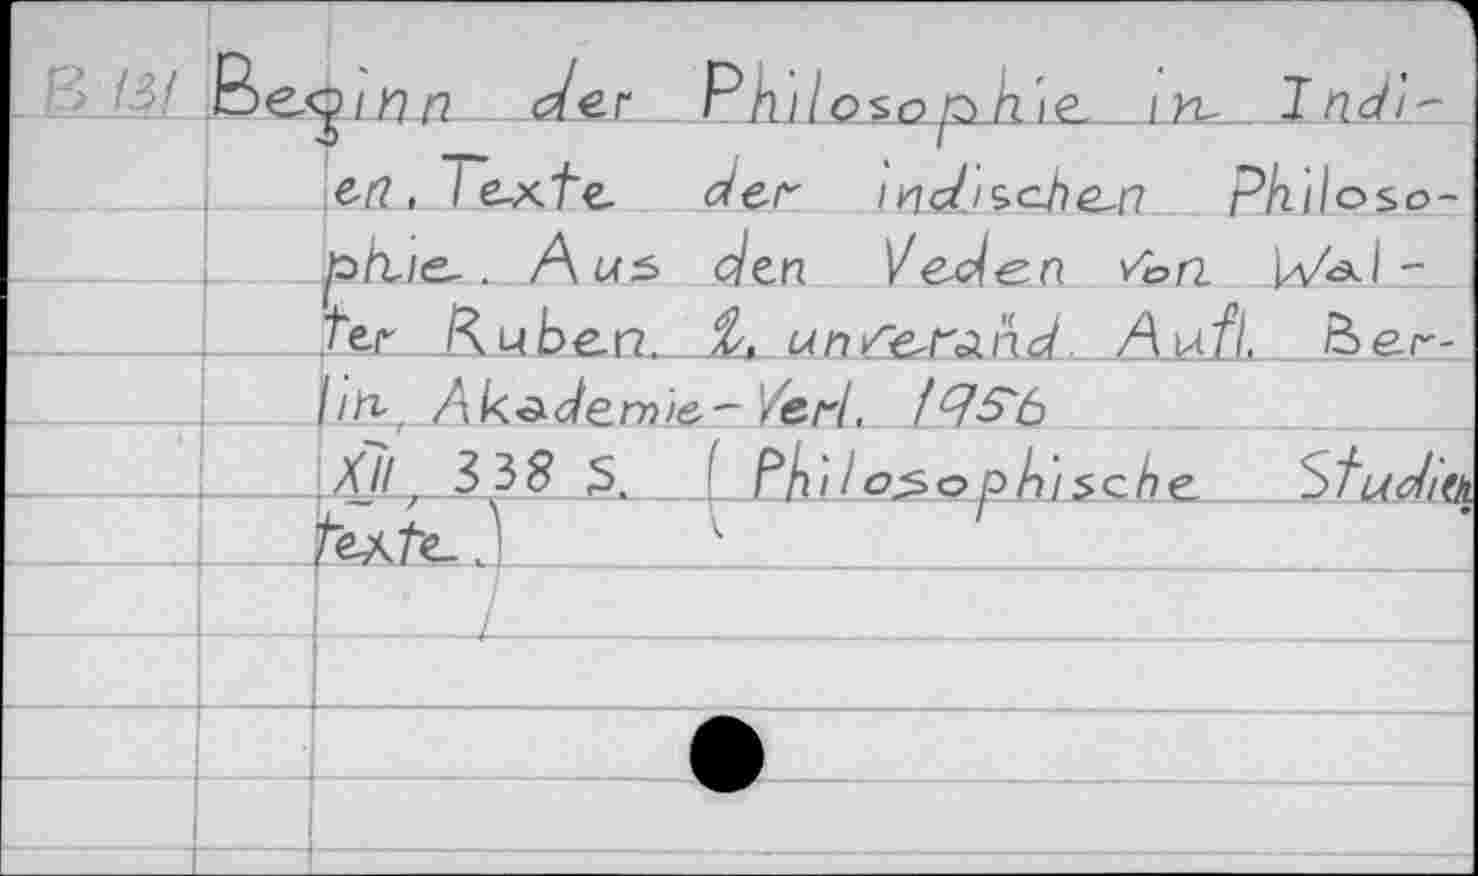 B 131 Beginn der Philosophie in Indi-
en. Texte der indischen Philoso-
phie. Aus den Veden von Wal-
ter Ruben. 2. unveränd. Aufl. Ber-
lin, Akademie-Verl. 1956
XII, 338 S. (Philosophische Studien
texte.)